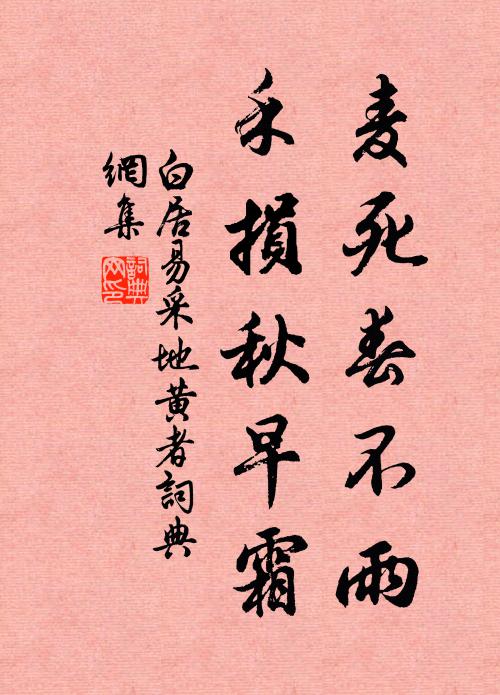 麦死春不雨
禾損秋早霜
白居易采地黄者詞典
網集
詞典
网印